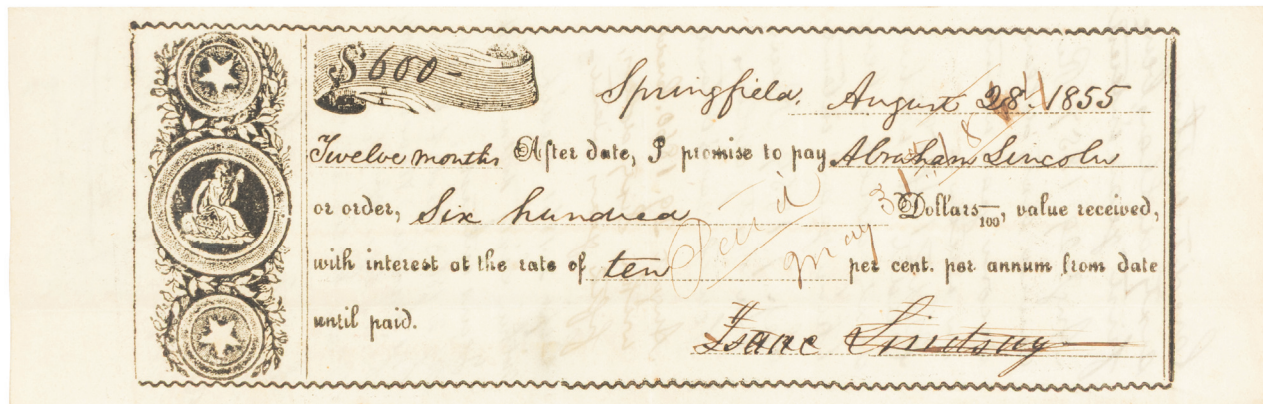 $600-
Springfield, August 28. 1855
Twelve months After date, I promise to pay Abraham Lincoln
or order, Six hundred Dollars /100, value received,
with interest at the rate of ten per cent. per annum from date
until paid.
Isaac Lindsay
Paid
May 3